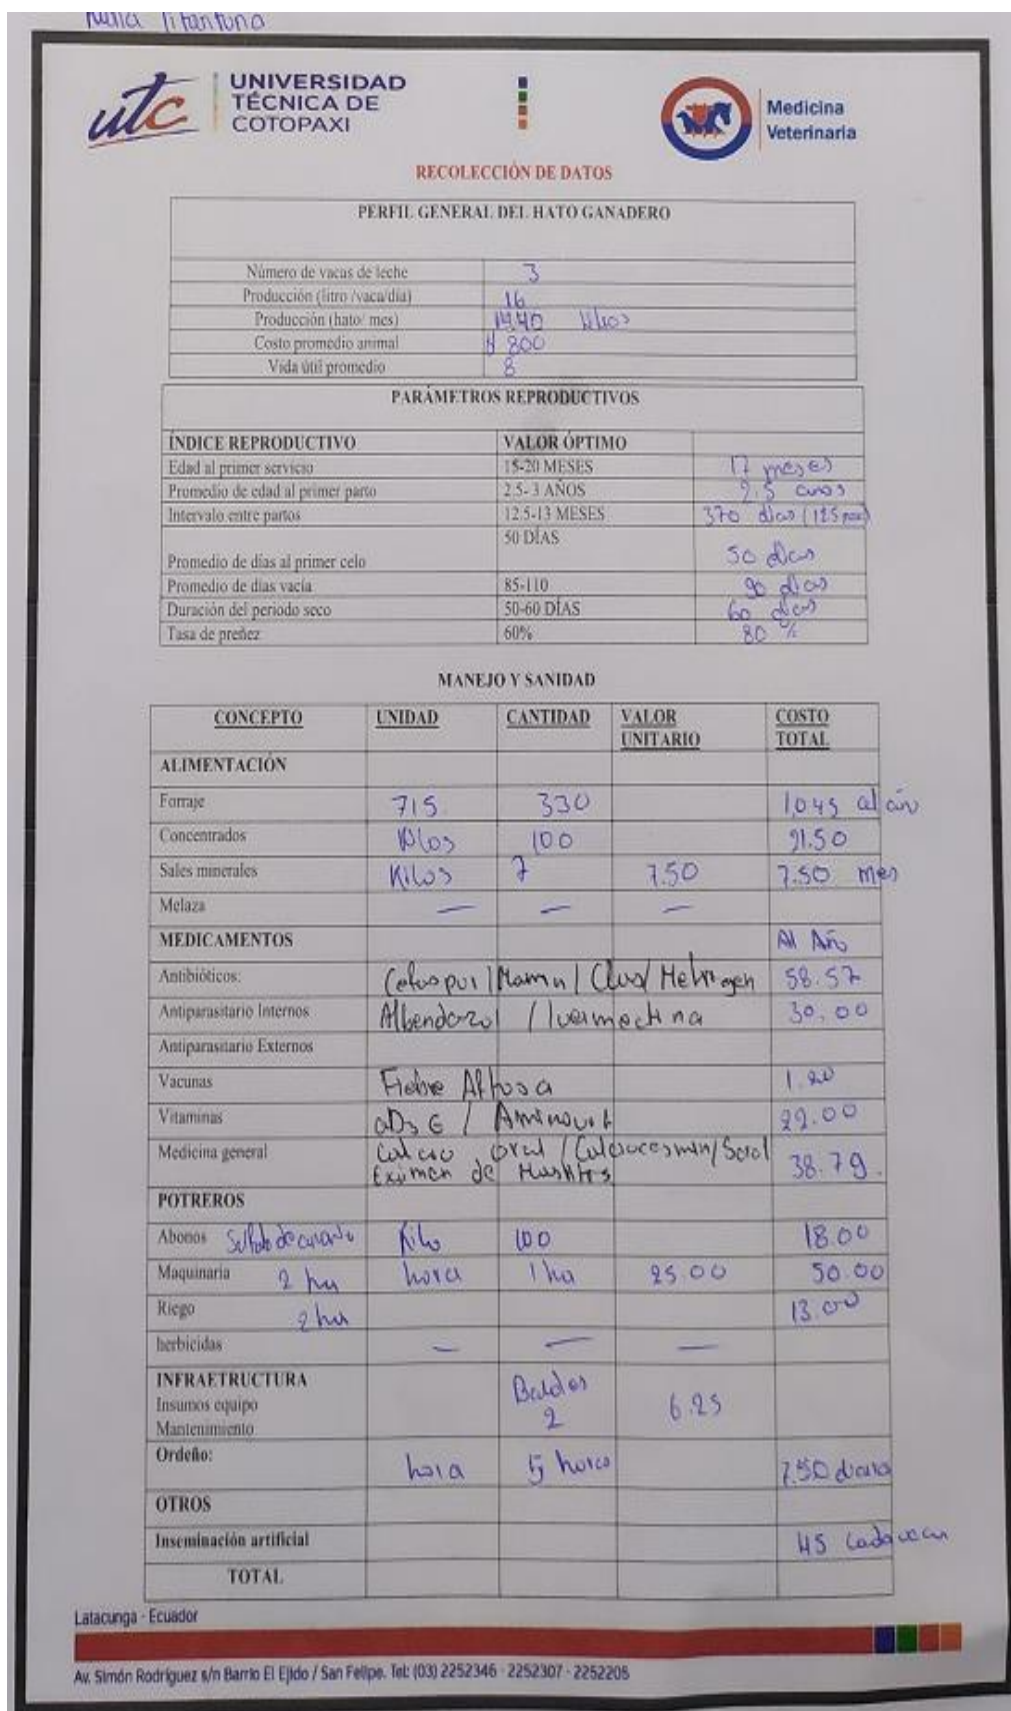 UNIVERSIDAD
TÉCNICA DE
COTOPAXI
utc
Medicina
Veterinaria
RECOLECCIÓN DE DATOS
PERFIL GENERAL DEL HATO GANADERO
Número de vacas de leche 3
Producción (litro /vaca/día) 16
Producción (hato/ mes) 1440
Costo promedio animal 800
Vida útil promedio 8
PARÁMETROS REPRODUCTIVOS
ÍNDICE REPRODUCTIVO VALOR ÓPTIMO
Edad al primer servicio 15-20 MESES 17 meses
Promedio de edad al primer parto 2.5- 3 AÑOS 2.5 anos
Intervalo entre partos 12.5-13 MESES 370 dias
50 DÍAS
Promedio de días al primer celo 50 dias
Promedio de días vacía 85-110 90 dias
Duración del periodo seco 50-60 DÍAS 60 dias
Tasa de preñez 60% 80 %
MANEJO Y SANIDAD
CONCEPTO UNIDAD CANTIDAD VALOR UNITARIO COSTO TOTAL
ALIMENTACIÓN
Forraje 715 330 1,045 al año
Concentrados Kilos 100 91.50
Sales minerales Kilos 7.50 7.50 mes
Melaza — — —
MEDICAMENTOS Al Año
Antibióticos: 58.57
Antiparasitario Internos Albendazol / Ivermectina 30.00
Antiparasitario Externos
Vacunas Fiebre Aftosa 1.20
Vitaminas 22.00
Medicina general Calcio oral / 38.79
Examen de
POTREROS
Abonos Kilo 100 18.00
Maquinaria 2 ha hora 1 ha 25.00 50.00
Riego 2 ha 13.00
herbicidas — — —
INFRAETRUCTURA
Insumos equipo Baldes 2 6.25
Mantenimiento
Ordeño: hora 5 horas 7.50 diario
OTROS
Inseminación artificial 45 cada vaca
TOTAL
Latacunga - Ecuador
Av. Simón Rodríguez s/n Barrio El Ejido / San Felipe. Tel: (03) 2252346 - 2252307 - 2252205